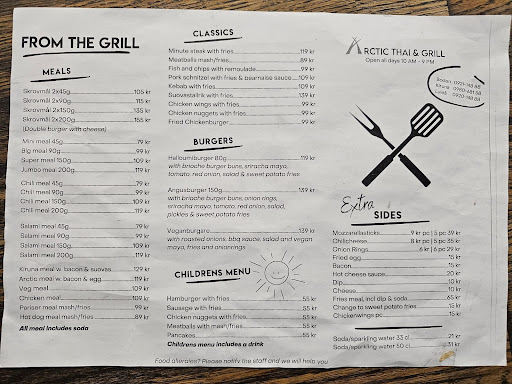 FROM THE GRILL
MEALS
Skrovmål 2x45g 105 kr
Skrovmål 2x90g 115 kr
Skrovmål 2x150g 135 kr
Skrovmål 2x200g 155 kr
(Double burger with cheese)
Mini meal 45g 79 kr
Big meal 90g 99 kr
Super meal 150g 109 kr
Jumbo meal 200g 119 kr
Chili meal 45g 79 kr
Chili meal 90g 99 kr
Chili meal 150g 109 kr
Chili meal 200g 119 kr
Salami meal 45g 79 kr
Salami meal 90g 99 kr
Salami meal 150g 109 kr
Salami meal 200g 119 kr
Kiruna meal w. bacon & suovas 129 kr
Arctic meal w. bacon & egg 119 kr
Veg meal 109 kr
Chicken meal 109 kr
Pariser meal mash/fries 99 kr
Hot dog meal mash/fries 89 kr
All meal includes soda
CLASSICS
Minute steak with fries 119 kr
Meatballs mash/fries 89 kr
Fish and chips with remoulade 99 kr
Pork schnitzel with fries & bearnaise sauce 109 kr
Kebab with fries 109 kr
Suovastallrik with fries 139 kr
Chicken wings with fries 99 kr
Chicken nuggets with fries 99 kr
Fried Chickenburger 99 kr
BURGERS
Halloumiburger 80g 119 kr
with brioche burger buns, sriracha mayo,
tomato, red onion, salad & sweet potato fries
Angusburger 150g 139 kr
with brioche burger buns, onion rings,
sriracha mayo, tomato, red onion, salad,
pickles & sweet potato fries
Veganburgare 139 kr
with roasted onions, bbq sauce, salad and vegan
mayo, fries and onionrings
CHILDRENS MENU
Hamburger with fries 55 kr
Sausage with fries 55 kr
Chicken nuggets with fries 55 kr
Meatballs with mash/fries 55 kr
Pancakes 55 kr
Childrens menu includes a drink
Food allergies? Please notify the staff and we will help you
ARCTIC THAI & GRILL
Open all days 10 AM - 9 PM
Extra
SIDES
Mozzarellasticks 9 kr pc | 5 pc 39 kr
Chilicheese 8 kr pc | 5 pc 35 kr
Onion Rings 6 kr | 6 pc 29 kr
Fried egg 15 kr
Bacon 15 kr
Hot cheese sauce 20 kr
Dip 10 kr
Cheese 11 kr
Fries meal, incl dip & soda 65 kr
Change to sweet potato fries 15 kr
Chickenwings pc 15 kr
Soda/sparkling water 33 cl 21 kr
Soda/sparkling water 50 cl 31 kr